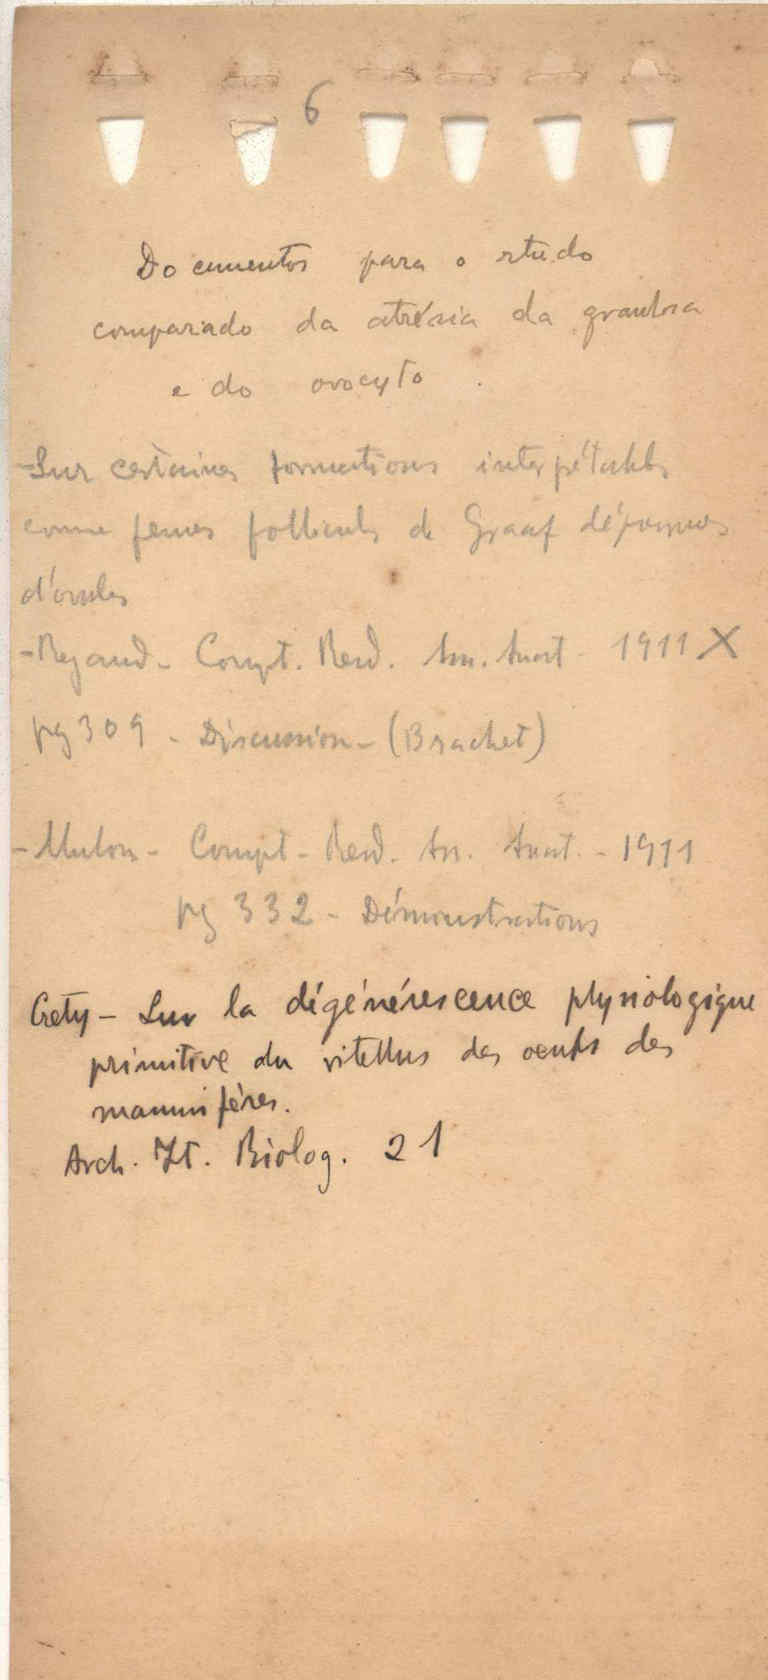 6
Documentos para o studo
comparado da atrésia da granulosa
e do ovocyto.
- Sur certaines formations interprétables
comme follicules de Graaf dépourvus
d'ovules
- Regaud - Compt. Rend. Ass. Anat - 1911 X
pg 309 - Discussion - (Brachet)
- Mulon - Compt - Rend. Ass. Anat. - 1911
pg 332 - Démonstrations
Crety - Sur la dégénérescence physiologique
primitive du vitellus des oeufs des
mammifères.
Arch. It. Biolog. 21